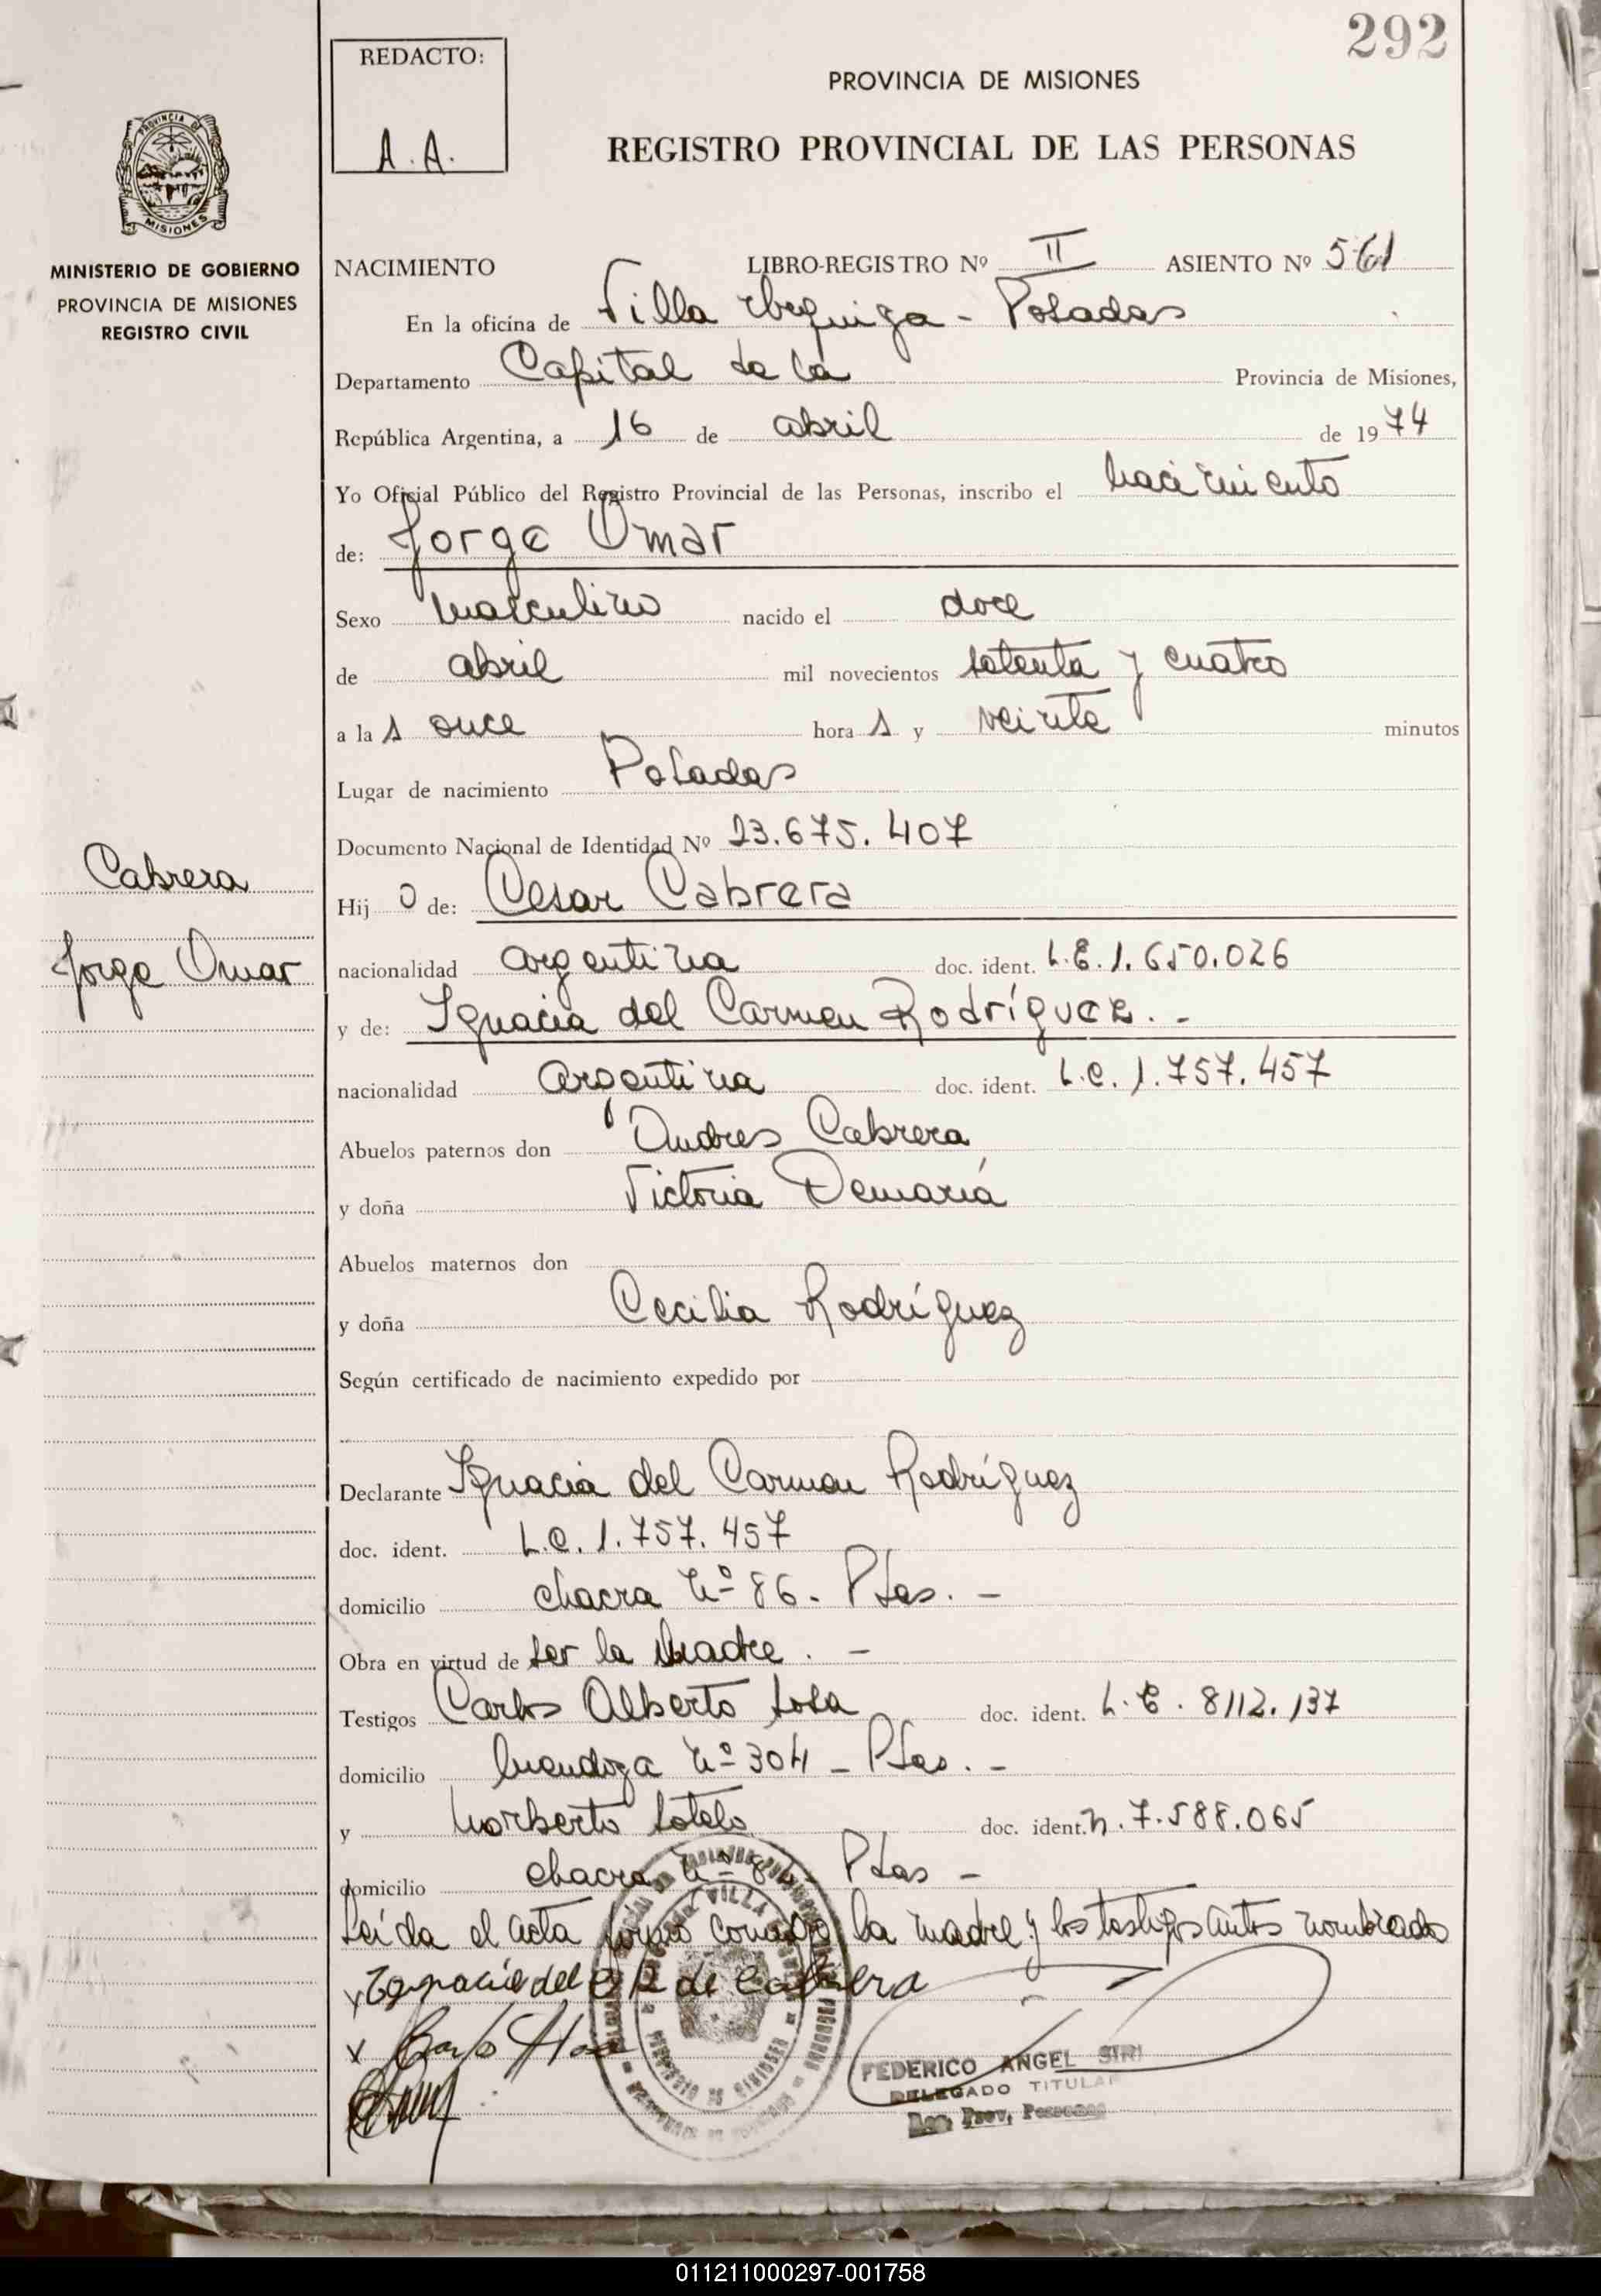 292
REDACTO:
A.A.
PROVINCIA DE MISIONES
REGISTRO PROVINCIAL DE LAS PERSONAS
PROVINCIA DE
MISIONES
MINISTERIO DE GOBIERNO
PROVINCIA DE MISIONES
REGISTRO CIVIL
NACIMIENTO LIBRO-REGISTRO Nº II ASIENTO Nº 561
En la oficina de Villa Urquiza - Posadas
Departamento Capital de la Provincia de Misiones,
República Argentina, a 16 de abril de 1974
Yo Oficial Público del Registro Provincial de las Personas, inscribo el nacimiento
de: Jorge Omar
Sexo masculino nacido el doce
de abril mil novecientos setenta y cuatro
a la s once hora s y veinte minutos
Lugar de nacimiento Posadas
Documento Nacional de Identidad Nº 23.675.407
Cabrera
Hij o de: Cesar Cabrera
Jorge Omar
nacionalidad argentina doc. ident. L.E. 1.650.026
y de: Ignacia del Carmen Rodríguez. -
nacionalidad argentina doc. ident. L.C. 1.757.457
Abuelos paternos don Andres Cabrera
y doña Victoria Demaría
Abuelos maternos don
y doña Cecilia Rodríguez
Según certificado de nacimiento expedido por
Declarante Ignacia del Carmen Rodríguez
doc. ident. L.C. 1.757.457
domicilio chacra Nº 86 - Pdas. -
Obra en virtud de ser la madre. -
Testigos Carlos Alberto Sosa doc. ident. L.E. 8112.137
domicilio Mendoza Nº 304 - Pdas. -
y Norberto Sotelo doc. ident. M. 7.588.065
domicilio chacra Nº Pdas -
Leída el acta firmó conmigo la madre y los testigos antes nombrados
x Ignacia del C R de Cabrera
x
FEDERICO ANGEL SIRI
DELEGADO TITULAR
Reg. Prov. Personas
011211000297-001758